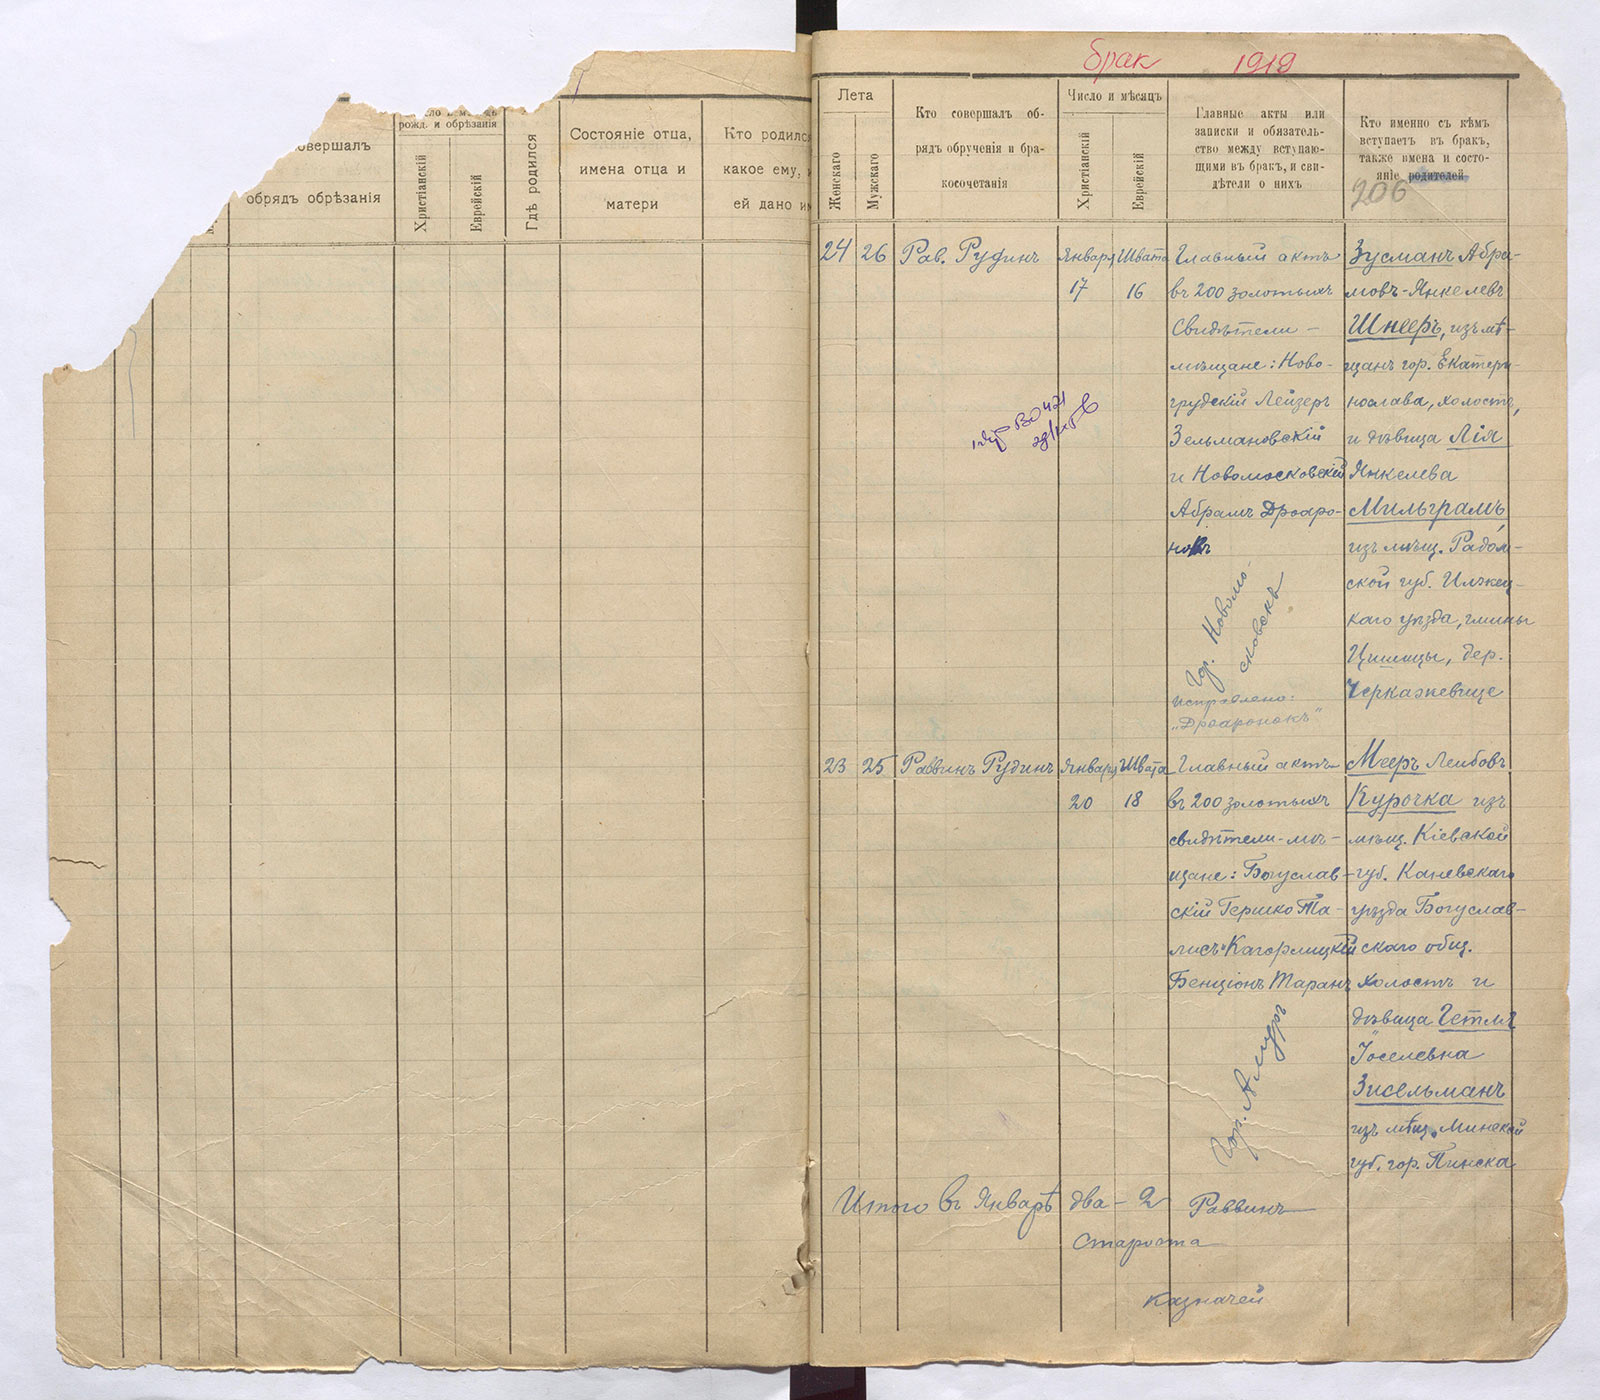 рожд. и обрѣзанія
Христіанскій
Еврейскій
Гдѣ родился
овершалъ
обрядъ обрѣзанія
Состояніе отца,
имена отца и
матери
Кто родился
какое ему, и
ей дано им
брак 1919
Лета
Женскаго
Мужскаго
Кто совершалъ об-
рядъ обрученія и бра-
косочетанія
Число и мѣсяцъ
Христіанскій
Еврейскій
Главные акты или
записки и обязатель-
ство между вступаю-
щими въ бракъ, и сви-
дѣтели о нихъ
Кто именно съ кѣмъ
вступаетъ въ бракъ,
также имена и состо-
яніе родителей
206
24
26
Рав. Рудинъ
Января
17
Швата
16
Главный актъ
въ 200 золотыхъ
Свидѣтели –
мѣщане: Ново-
грудскій Лейзеръ
Зельмановскій
и Новомосковскій
Абрамъ Дроаро-
нокъ
Гор. Новомо-
сковскъ
Исправлено:
„Дроаронокъ"
Зусманъ Абра-
мовъ-Янкелевъ
Шнееръ, изъ мѣ-
щанъ гор. Екатери-
нослава, холостъ,
и дѣвица Лія
Янкелева
Мильграмъ
изъ мѣщ. Радом-
ской губ. Илжец-
каго уѣзда, гмины
дер.
23
25
Раввинъ Рудинъ
Января
20
Швата
18
Главный актъ
въ 200 золотыхъ
свидѣтели-мѣ-
щане: Богуслав-
скій Гершко Та-
лисъ и Кагорлицкій
Бенціонъ Таранъ
Гор. Амуръ
Мееръ Лейбовъ
Курочка изъ
мѣщ. Кіевской
губ. Каневскаго
уѣзда Богуслав-
скаго общ.
холостъ и
дѣвица Гетля
Іоселевна
Зисельманъ
изъ мѣщ. Минской
губ. гор. Пинска
Итого въ Январѣ два – 2 Раввинъ
Староста
Казначей